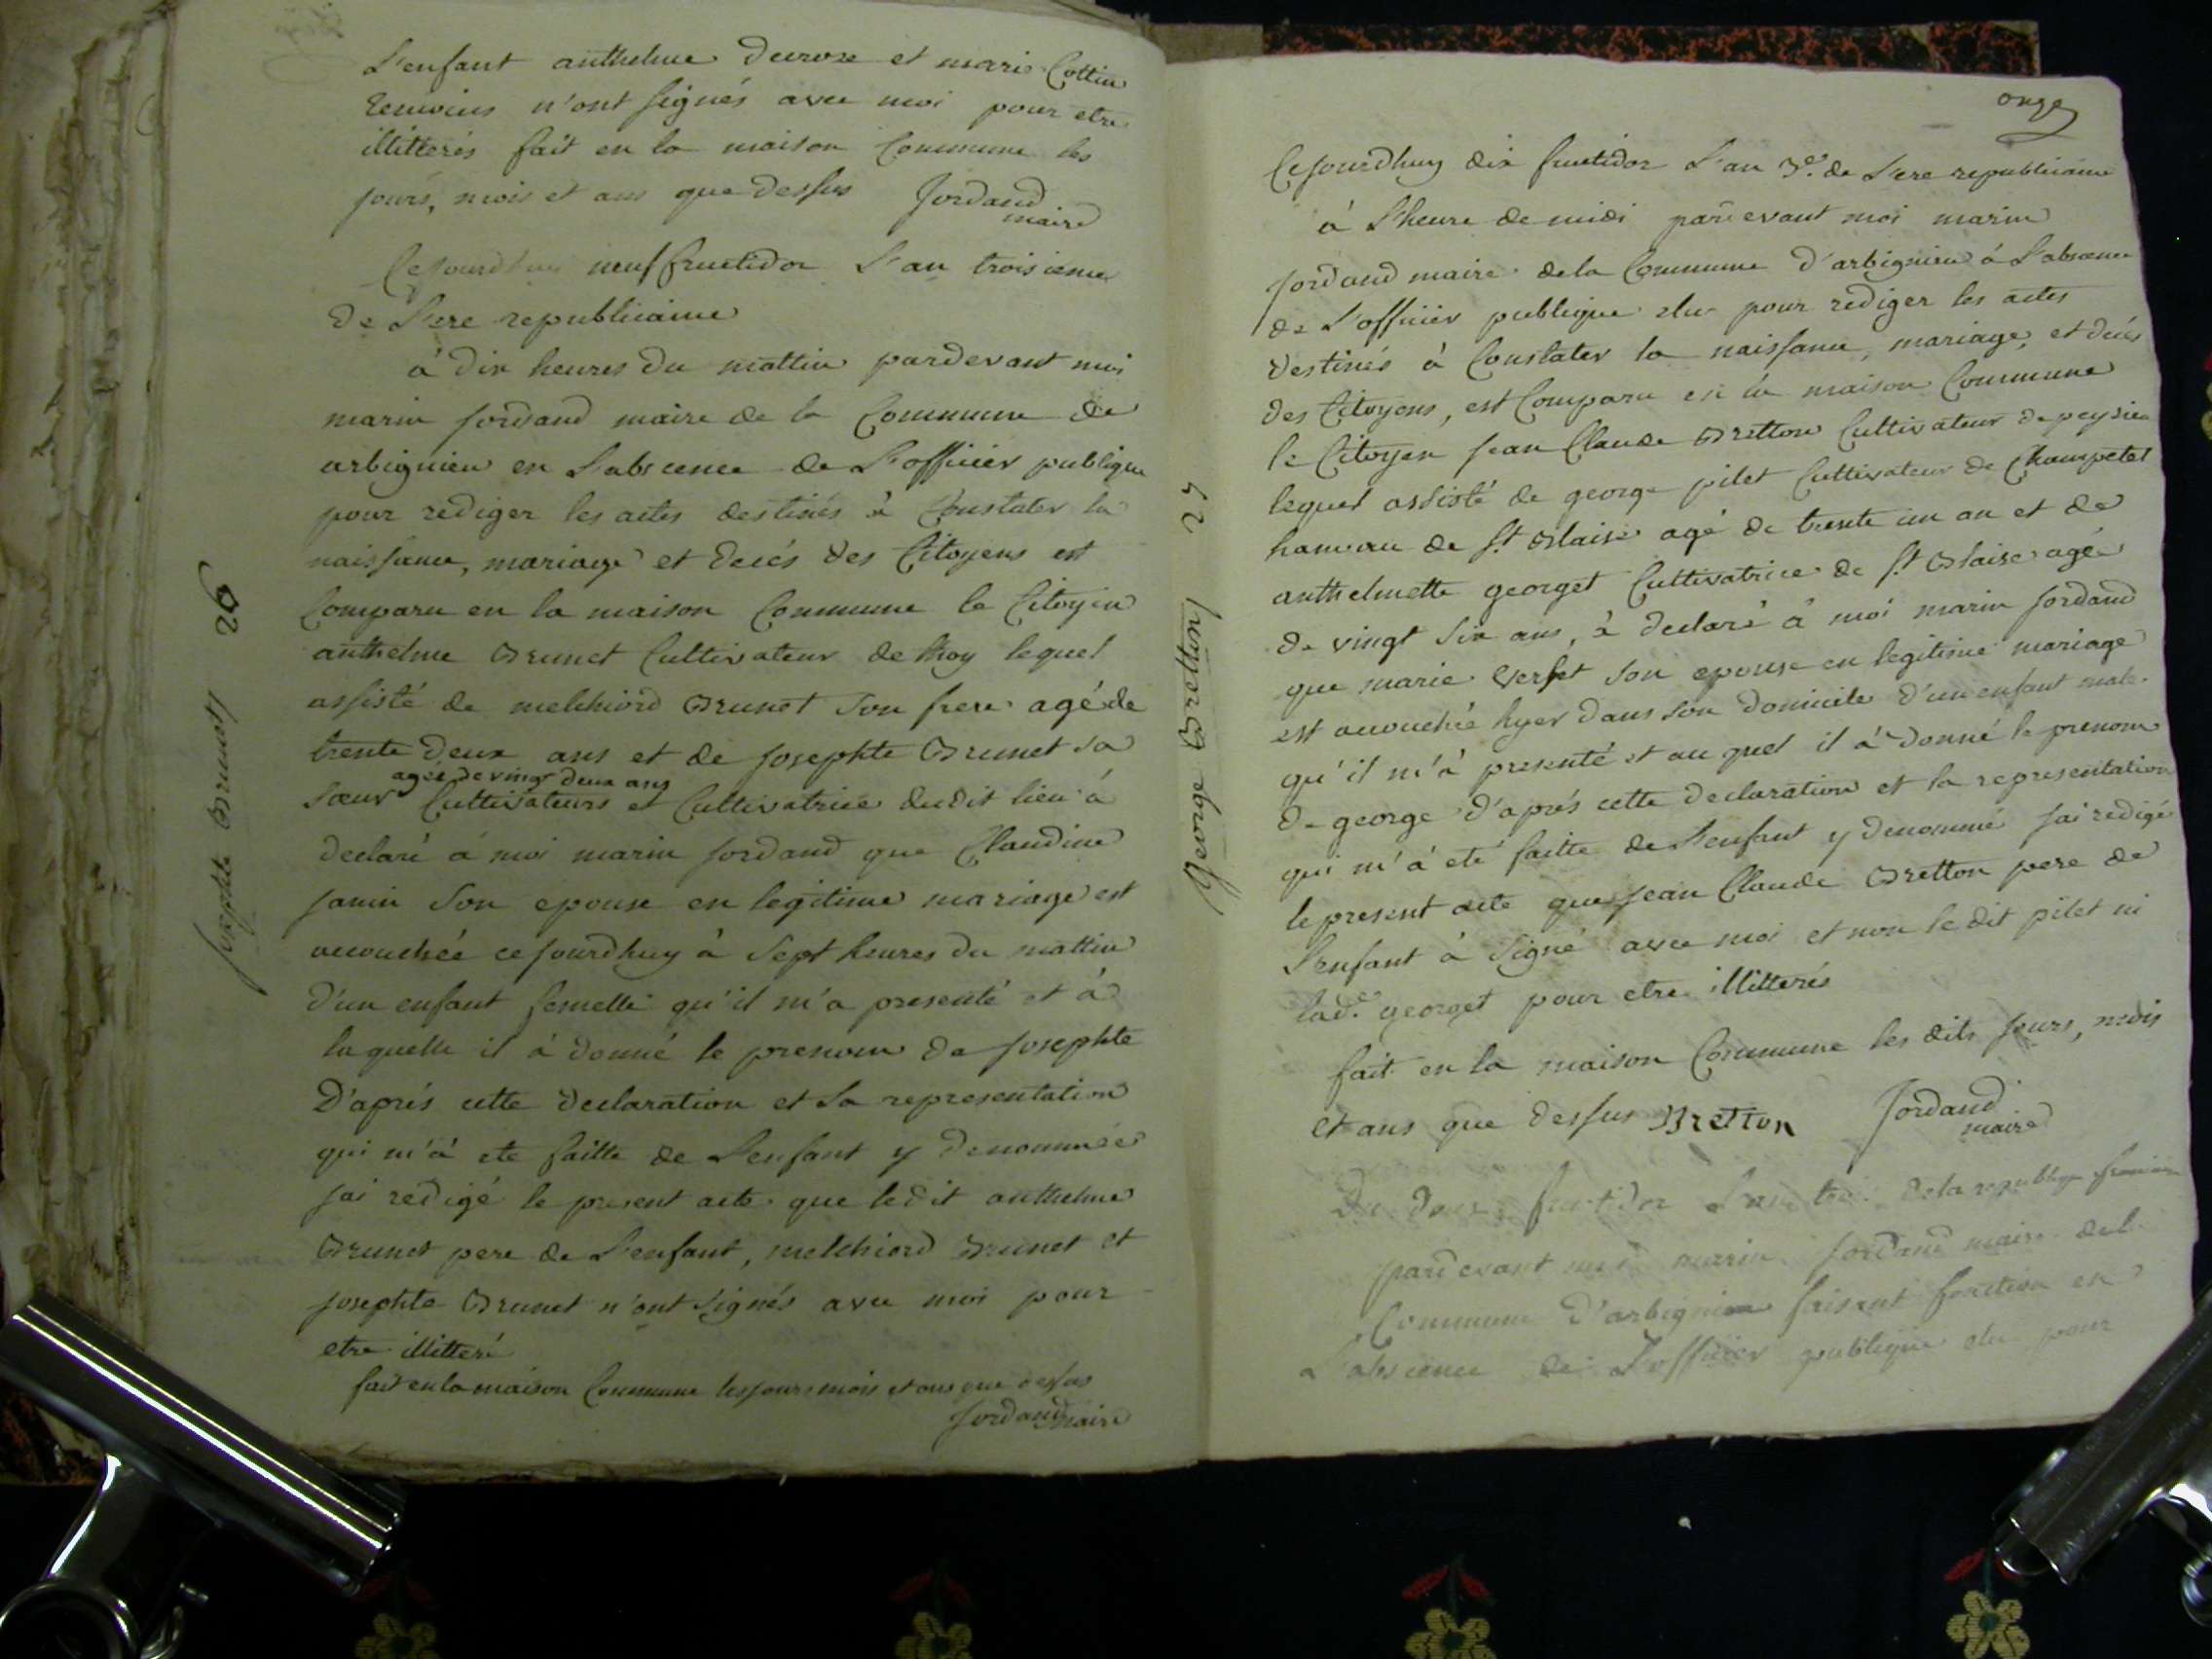 L'enfant anthelme Decroze et marie Cottin
temoins n'ont signés avec moi pour etre
illitterés fait en la maison Commune les
jours, mois et ans que dessus Jordand
maire
Cejourdhuy neuf fructidor L'an troisieme
De L'ere republicaine
à dix heures du mattin pardevant moi
marin jordand maire de la Commune de
arbignieu en L'abscence de L'officier publique
pour rediger les actes destinés à Constater la
naissance, mariage et decés des Citoyens est
Comparu en la maison Commune le Citoyen
anthelme Brunet Cultivateur de thoy lequel
assisté de melchiord Brunet son frere agé de
trente deux ans et de josephte Brunet sa
agée de vingt deux ans
sœur Cultivateurs et Cultivatrice dudit lieu à
declaré à moi marin jordand que Claudine
janin son epouse en legitime mariage est
accouchée cejourdhuy à sept heures du mattin
d'un enfant femelle qu'il m'a presenté et à
laquelle il à donné le prenom de josephte
D'aprés cette declaration et la representation
qui m'à eté faitte de L'enfant y denommée
jai redigé le present acte que ledit anthelme
Brunet pere de L'enfant, melchiord Brunet et
josephte Brunet n'ont signés avec moi pour
etre illitteré
fait en la maison Commune les jours mois et ans que dessus
Jordand maire
josephte Brunet 26
onze
Cejourdhuy dix fructidor L'an 3e. de L'ere republicaine
à L'heure de midi pardevant moi marin
jordand maire de la Commune d'arbignieu à L'absence
de L'officier publique elu pour rediger les actes
destinés à Constater la naissance, mariage, et decés
des Citoyens, est Comparu en la maison Commune
le Citoyen jean Claude Bretton Cultivateur de peysieu
lequel assisté de george pilet Cultivateur de Champetel
hameau de St Blaise agé de trente un an et de
anthelmette georget Cultivatrice de St Blaise agée
de vingt six ans, à declaré à moi marin jordand
que marie verset son epouse en legitime mariage
est accouchée hyer dans son domicile d'un enfant male
qu'il m'à presenté et au quel il à donné le prenom
de george d'aprés cette declaration et la representation
qui m'à eté faitte de L'enfant y denommé jai redigé
le present acte que jean Claude Bretton pere de
L'enfant à signé avec moi et non le dit pilet ni
lade. georget pour etre illitterés
fait en la maison Commune les dits jours, mois
et ans que dessus Bretton Jordand
maire
George Bretton 27
Du fructidor L'an de la republique
pardevant moi marin jordand maire de la
Commune d'arbignieu faisant fonction en
L'abscence de L'officier publique elu pour